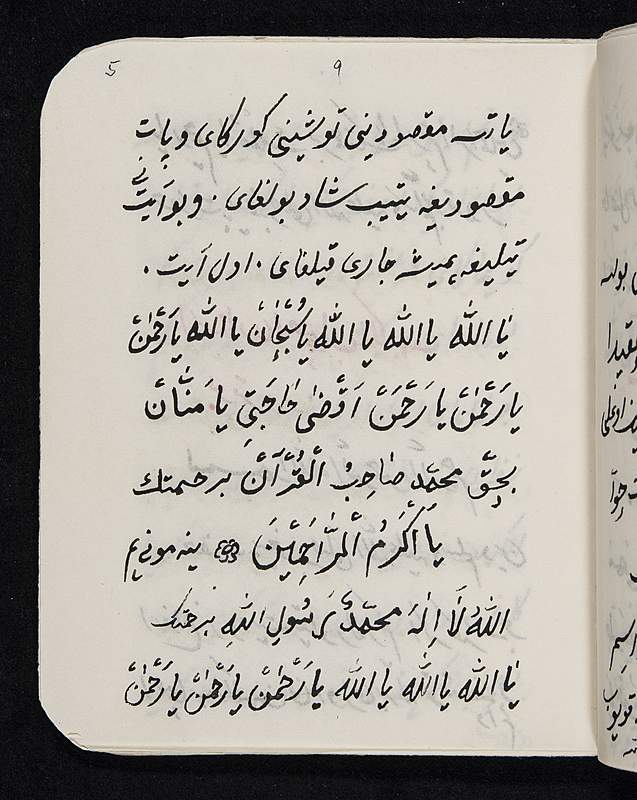 5 ٩
یاتسه مقصودینی توشینی کورکای و پات
مقصودیغه یتیب شاد بولغای . و بو آیتنی
تیلیغه همیشه جاری قیلغای . اول آیت .
یا اللّٰه یا اللّٰه یا اللّٰه یا سُبْحٰانْ یا اللّٰه یا رَحْمٰنْ
یا رَحْمٰنْ یا رَحْمٰنْ اَقْضٰی حٰاجَتِی یا مَنّٰانْ
بِحَقِّ محمّدٍ صٰاحِبُ الْقُرْآنْ برحمتك
یٰا اَکْرَمُ الرَّاحِمِیْنَ ینه مونی هم
اللّٰهُ لَا اِلٰهَ محمّدٌ رَسُولِ اللّٰهِ برحمتك
یٰا اللّٰه یا اللّٰه یا اللّٰه یا رَحْمٰنْ یا رَحْمٰنْ یا رَحْمٰنْ